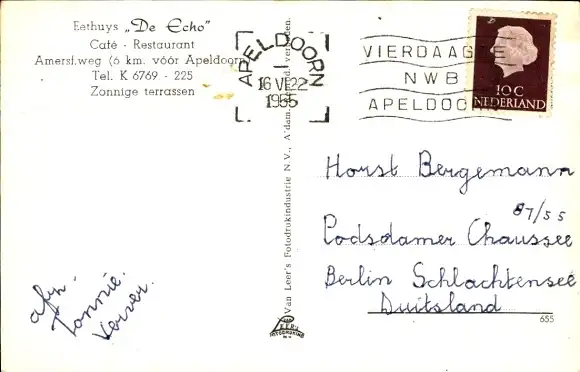 Eethuys „De Echo"
Café - Restaurant
Amersf.weg (6 km. vóór Apeldoorn)
Tel. K 6769 - 225
Zonnige terrassen
APELDOORN
16 VI 22
1955
VIERDAAGSE
NWB
APELDOORN
10 C
NEDERLAND
Van Leer's Fotodrukindustrie N.V., A'dam verboden.
Horst Bergemann
87/55
Podsdamer Chaussee
Berlin Schlachtensee
Duitsland
afz.
Tonnie.
Verver.
VAN
LEER'S
FOTODRUKIND
N.V.
655